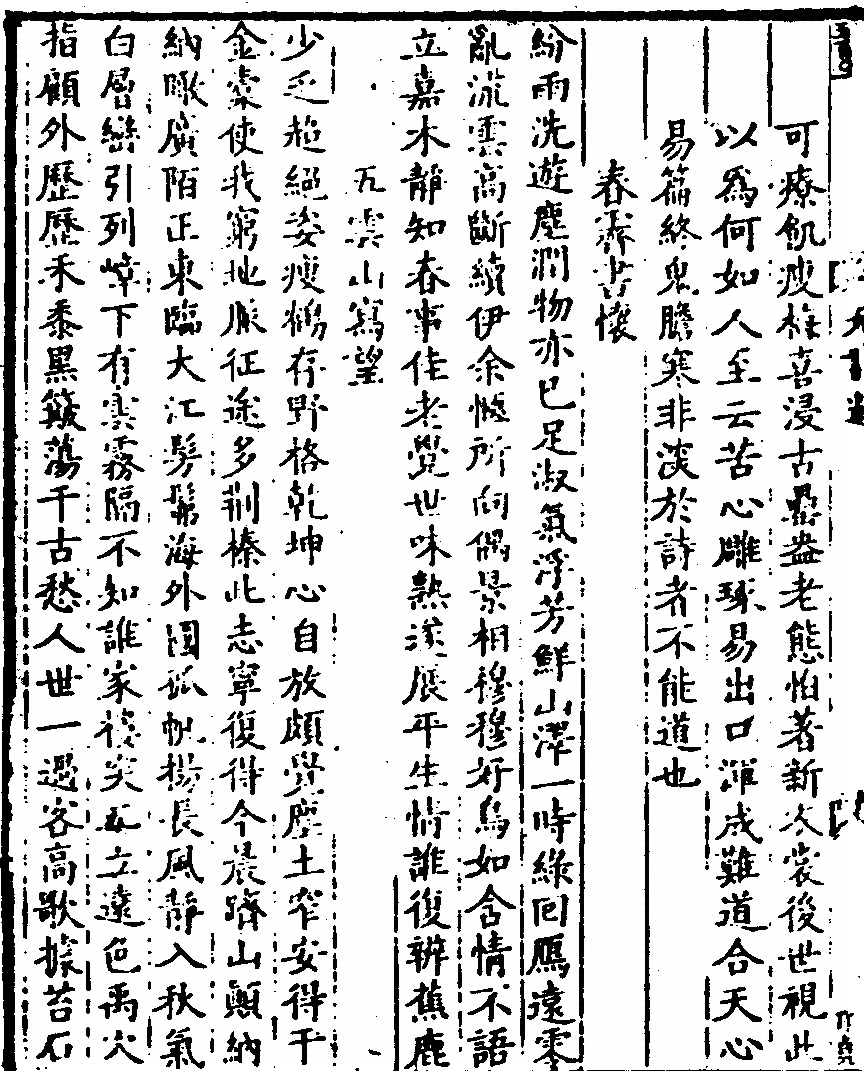 可療飢瘦梅喜浸古罍盎老態怕著新衣裳後世視此
以為何如人至云苦心雕琢易出口渾成難道合天心
易篇終鬼膽寒非深於詩者不能道也
春霽書懷
紛雨洗遊塵潤物亦已足淑氣浮芳鮮山澤一時綠回鴈遠零
亂流雲高斷續伊余愜所向偶景相穆穆好鳥如含情不語
立嘉木靜知春事佳老覺世味熟遂展平生情誰復辨蕉鹿
五雲山寫望
少乏超絕姿瘦鶴存野格乾坤心自放頗覺塵土窄安得千
金橐使我窮地脈征途多荆榛此志寧復得今晨躋山顛納
納瞰廣陌正東臨大江髣髴海外國孤帆揚長風靜入秋氣
白層巒引列嶂下有雲霧隔不知誰家突兀立遠色禹穴
指顧外歷歷禾黍黑簸蕩千古愁人世一過客高歌據苔石